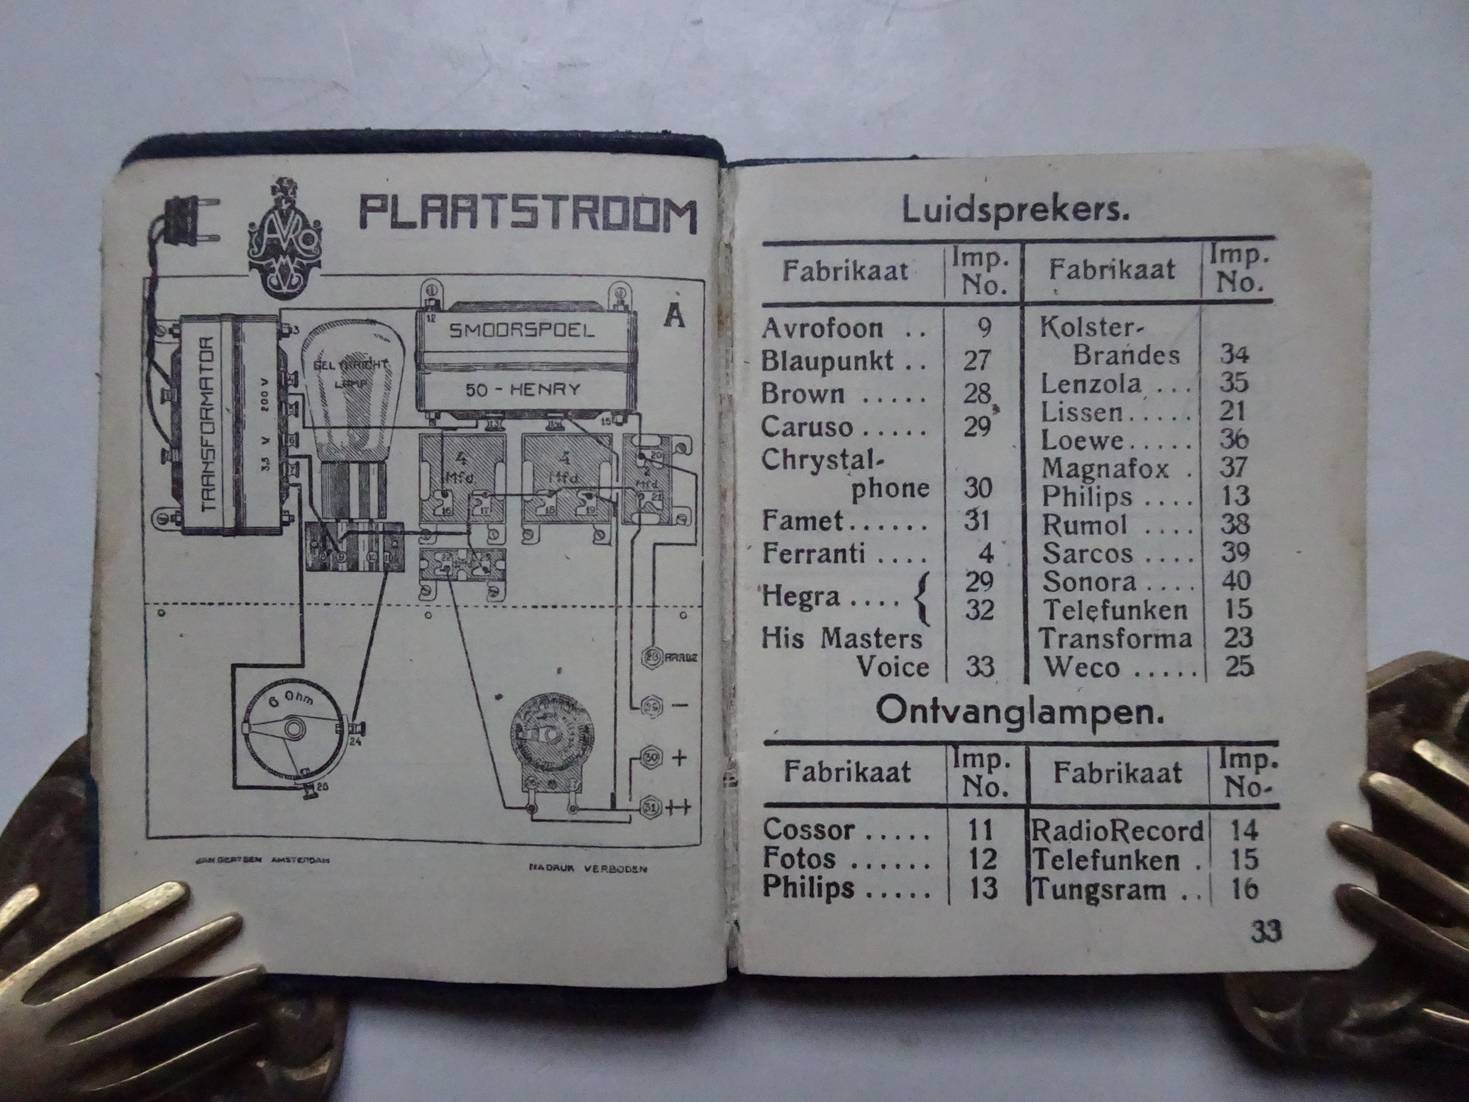 AVRO
PLAATSTROOM
A
12
SMOORSPOEL
50 - HENRY
15
TRANSFORMATOR
200 V
3,5 V
3
GELYKRICHT
LAMP
4 Mfd
4 Mfd
2 Mfd
16
17
18
19
20
21
6 Ohm
24
AARDE
−
30 +
31 ++
JAN GERTSEN AMSTERDAM
NADRUK VERBODEN
Luidsprekers.
Fabrikaat Imp. No. Fabrikaat Imp. No.
Avrofoon .. 9
Blaupunkt .. 27
Brown ..... 28
Caruso ..... 29
Chrystal-
phone 30
Famet...... 31
Ferranti .... 4
Hegra .... { 29
32
His Masters
Voice 33
Kolster-
Brandes 34
Lenzola ... 35
Lissen..... 21
Loewe..... 36
Magnafox . 37
Philips .... 13
Rumol .... 38
Sarcos .... 39
Sonora .... 40
Telefunken 15
Transforma 23
Weco ..... 25
Ontvanglampen.
Fabrikaat Imp. No. Fabrikaat Imp. No-
Cossor ..... 11 RadioRecord 14
Fotos ...... 12 Telefunken . 15
Philips ..... 13 Tungsram .. 16
33